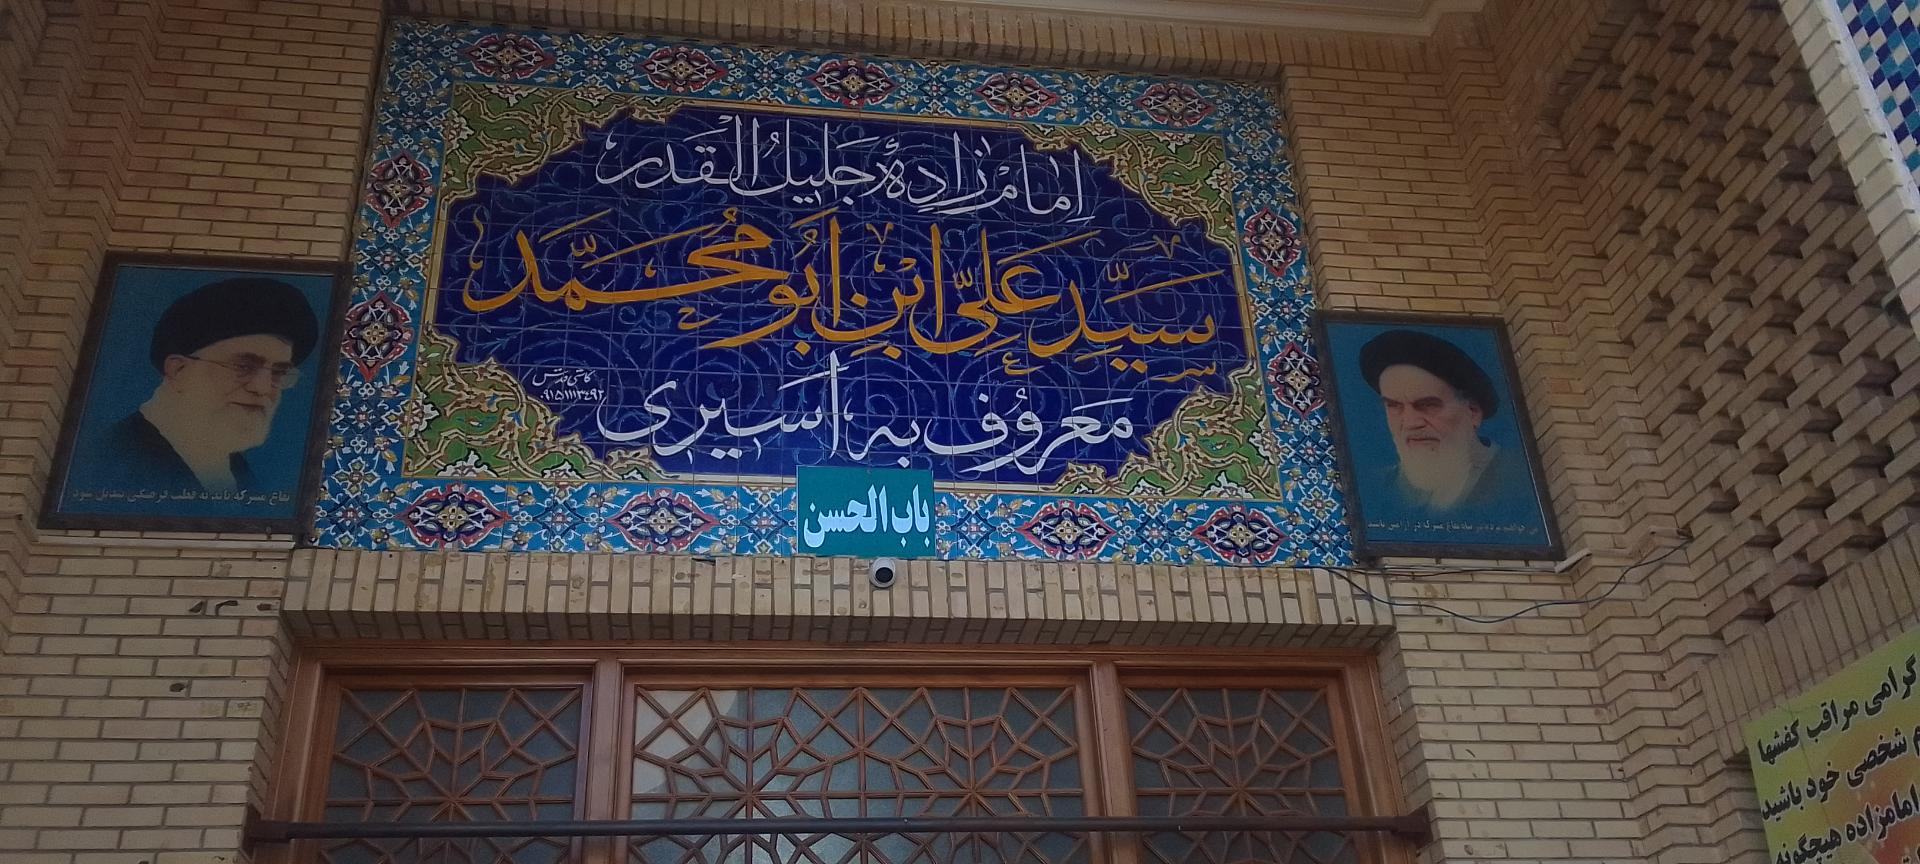 امامزادهٔ جلیل القدر
سیّد علیّ ابن ابو محمّد
معروف به اسیری
کاشی قدس
۰۹۱۵۱۱۱۳۴۹۲
باب الحسن
بقاع متبرکه باید به قطب فرهنگی تبدیل شود
گرامی مراقب کفشها
شخصی خود باشید
امامزاده هیچگونه